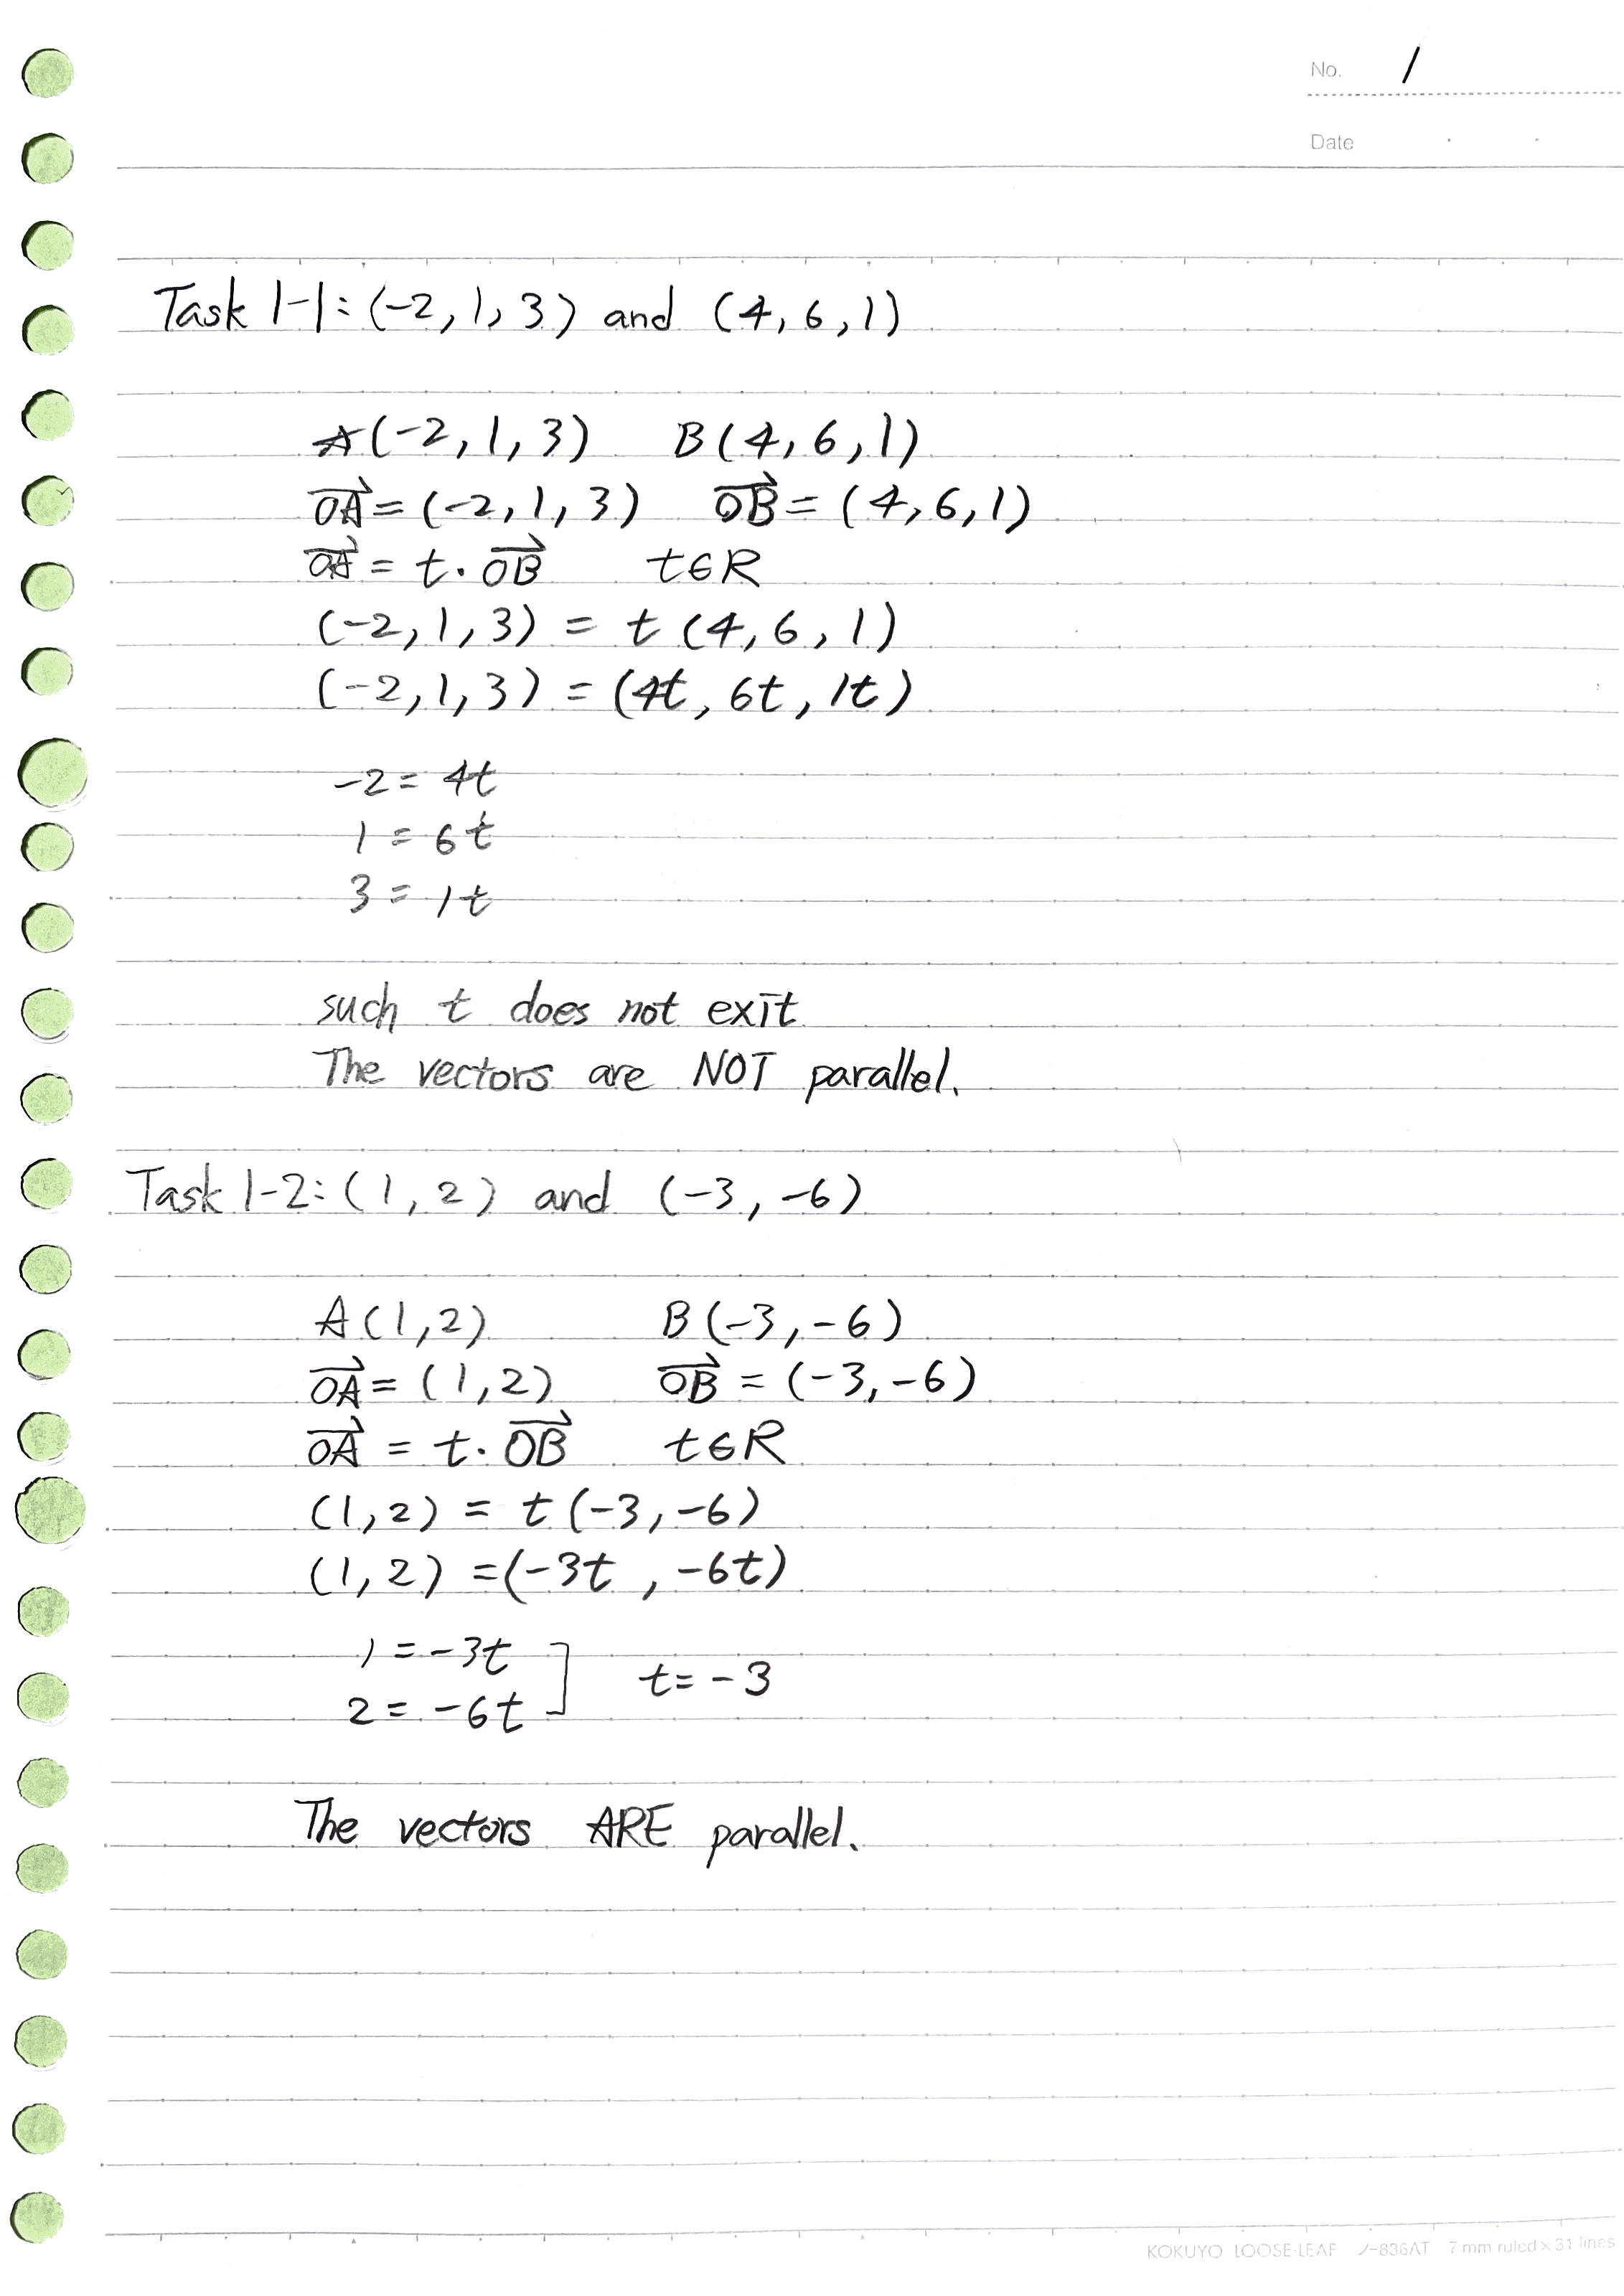 No. 1
Date
Task 1-1: (-2, 1, 3) and (4, 6, 1)
A(-2, 1, 3) B(4, 6, 1)
→OA = (-2, 1, 3) →OB = (4, 6, 1)
→OA = t · →OB t∈R
(-2, 1, 3) = t (4, 6, 1)
(-2, 1, 3) = (4t, 6t, 1t)
-2 = 4t
1 = 6t
3 = 1t
such t does not exit
The vectors are NOT parallel.
Task 1-2: (1, 2) and (-3, -6)
A(1, 2) B(-3, -6)
→OA = (1, 2) →OB = (-3, -6)
→OA = t · →OB t∈R
(1, 2) = t (-3, -6)
(1, 2) = (-3t, -6t)
1 = -3t
2 = -6t ] t = -3
The vectors ARE parallel.
KOKUYO LOOSE-LEAF ノ-836AT 7 mm ruled × 31 lines